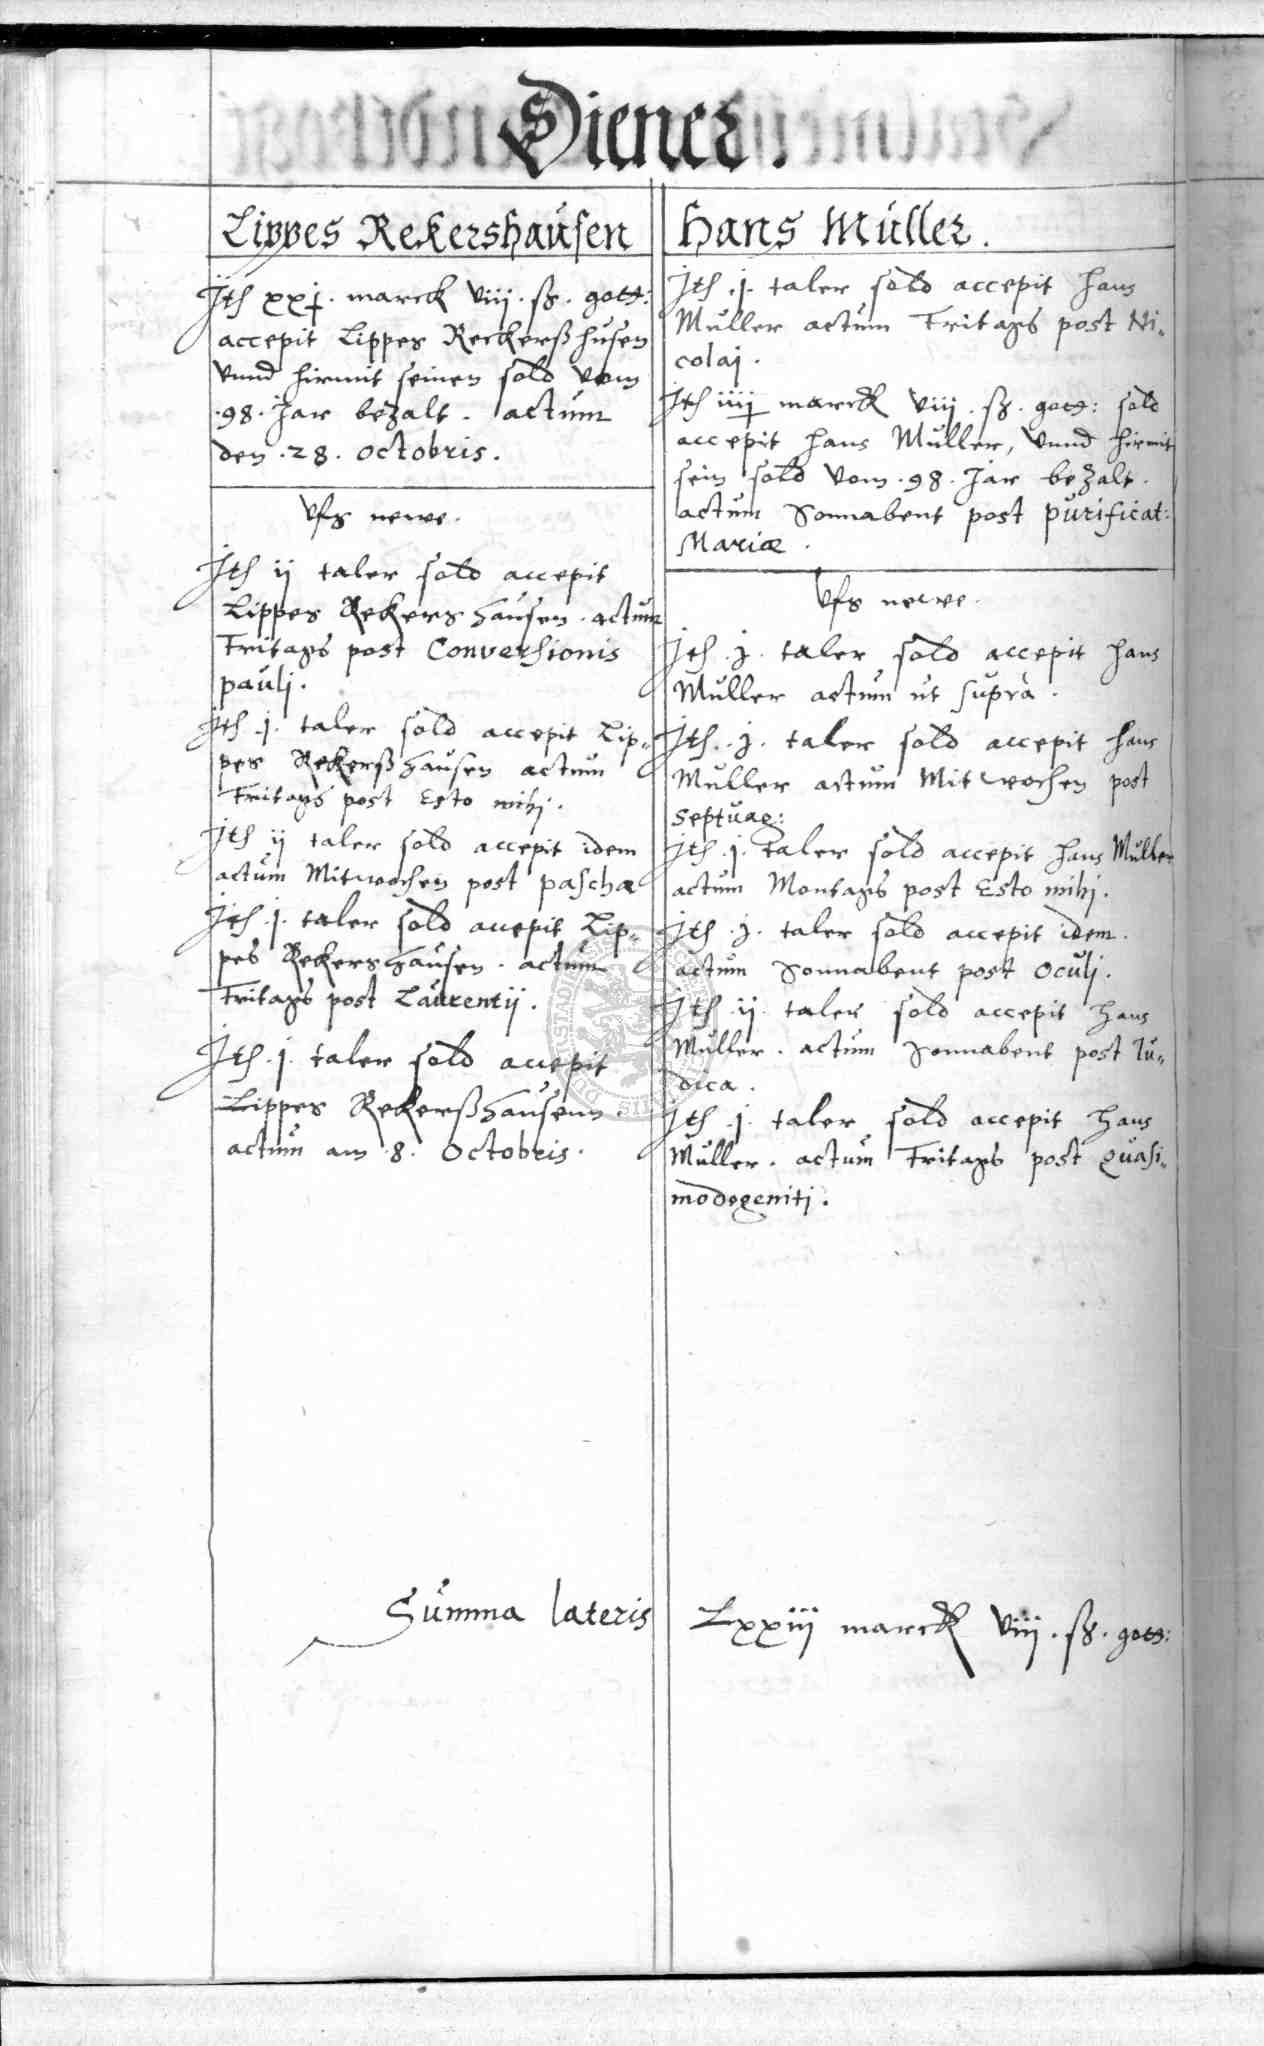 Diener.
Lippes Rekershausen
Jth xxj. marck viij. ß. gott:
accepit Lippes Reckerßhusen
vnnd hirmit seinen sold vom
.98. Jar bezalt. actum
den .28. octobris.
vfs newe.
Jth ij taler sold accepit
Lippes Rekershausen. actum
Fritags post Conversionis
pauli.
Jth .j. taler sold accepit Lip„
pes Rekerßhausen actum
Fritags post Esto mihi.
Jth ij taler sold accepit idem
actum Mitwochen post paschæ
Jth .j. taler sold accepit Lip„
pes Rekershausen. actum
Fritags post Laurentij.
Jth .j. taler sold accepit
Lippes Rekerßhausenn.
actum am .8. Octobris.
Hans Müller.
Jth .j. taler sold accepit Hans
Muller actum Fritags post Ni„
colaj.
Jth iiij marck viij. ß. gott: sold
accepit Hans Muller, vnnd hirmit
sein sold vom .98. Jar bezalt.
actum Sonnabent post purificat:
Mariæ.
vfs newe.
Jth .j. taler sold accepit Hans
Muller actum ut suprà.
Jth .j. taler sold accepit Hans
Muller actum Mitwochen post
Septuag:
Jth .j. taler sold accepit Hans Müller
actum Montags post Esto mihj.
Jth .j. taler sold accepit idem.
actum Sonnabent post Oculj.
Jth .ij. taler sold accepit Hans
Muller. actum Sonnabent post Iu„
dica.
Jth .j. taler sold accepit Hans
Muller. actum Fritags post Quasi„
modogeniti.
Summa lateris Lxxiij marck viij. ß. gott: